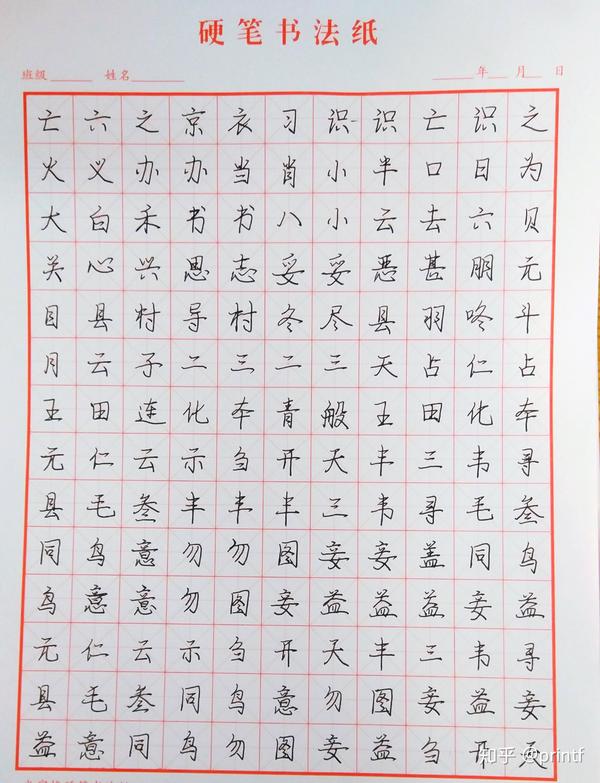 硬笔书法纸
班级 姓名 年 月 日
亡六之京衣习识识亡识之
火义办办当肖小半口日为
大白禾书书八小云去六贝
关心兴恩志妥妥恶甚朋元
目县村导村冬尽县羽咚斗
月云子二三二三天占仁占
王田连化本青般王田化本
元仁云示刍开天丰三韦寻
县毛叁丰丰丰三韦寻毛叁
同鸟意勿勿图妾妾盖同鸟
鸟意意勿图妾益益益妾益
元仁云示刍开天丰三韦寻
县毛叁同鸟意勿图妾益妾
益意同鸟勿图妾益刍开天
知乎 @printf